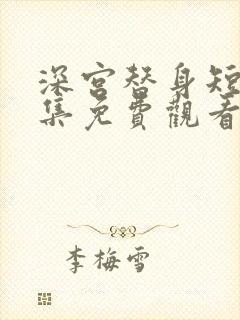 深宫替身短
集免費觀看
李梅雪